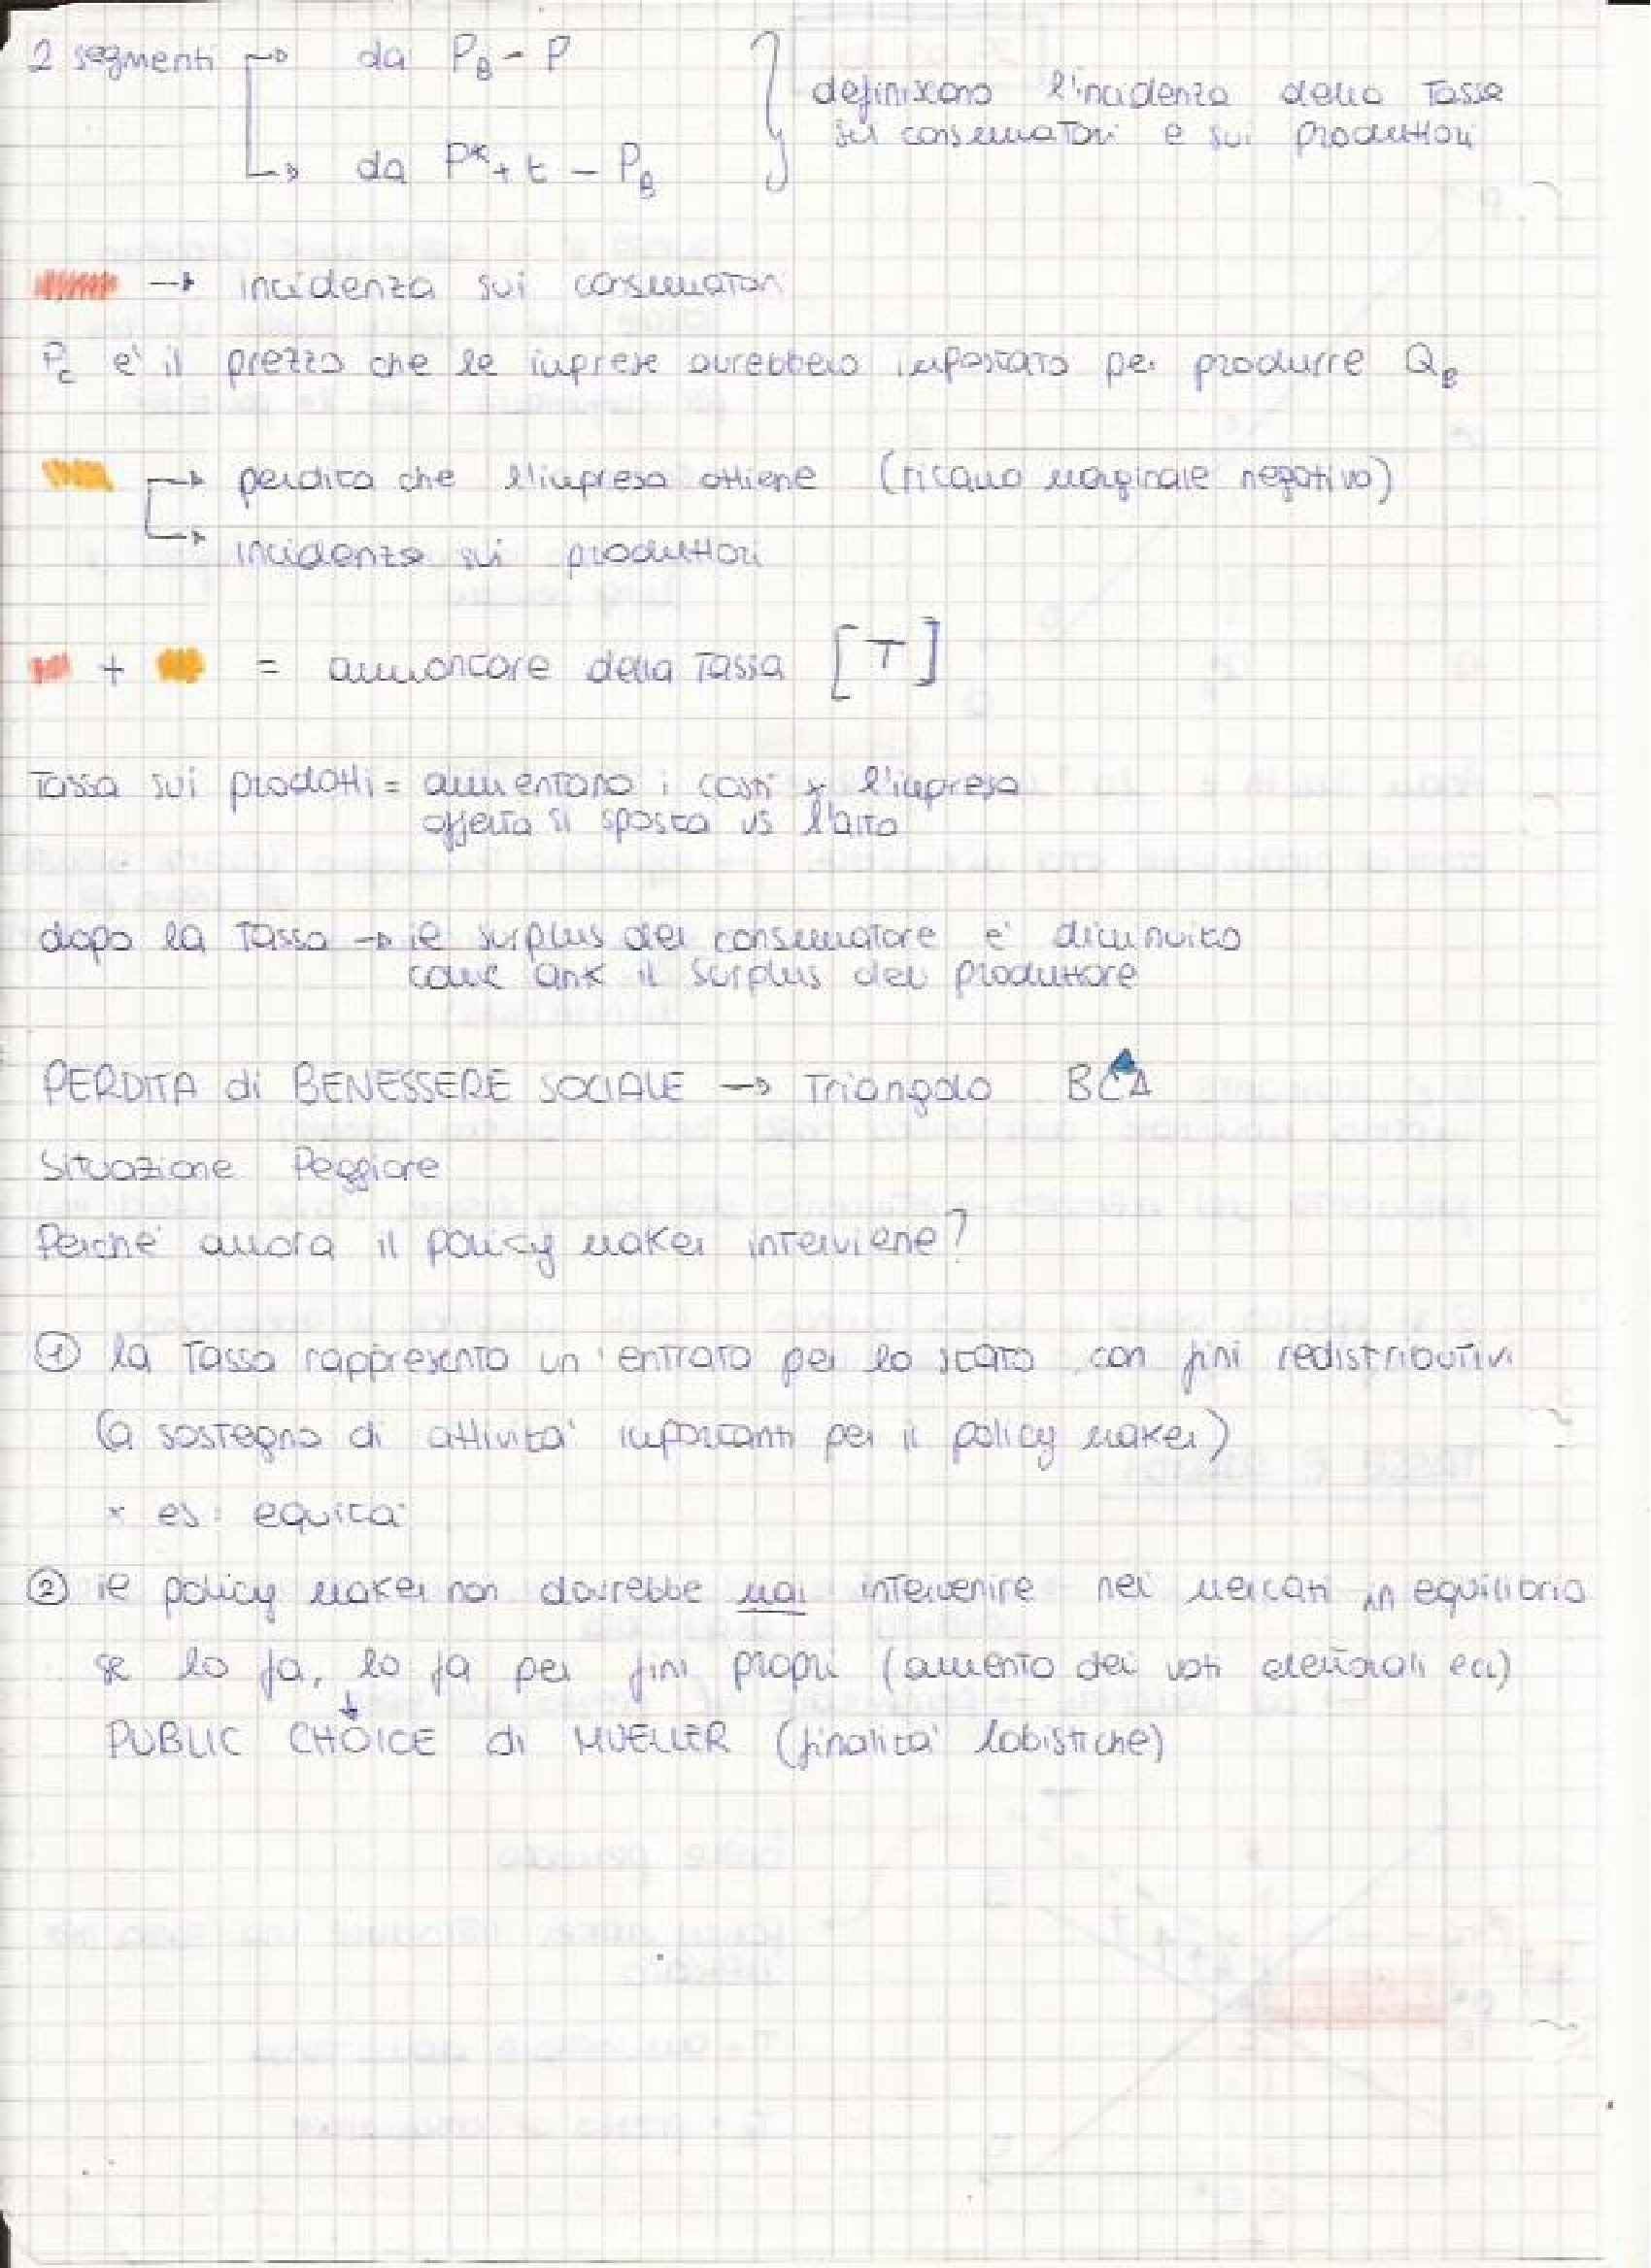 2 segmenti → da P_B - P
→ da P* + t - P_B
definiscono l'incidenza della Tassa
sui consumatori e sui produttori
→ incidenza sui consumatori
P_C e' il prezzo che le imprese avrebbero impostato per produrre Q_B
→ perdita che l'impresa ottiene (ricavo marginale negativo)
→ incidenza sui produttori
+ = ammontare della Tassa [T]
Tassa sui prodotti = aumentano i costi x l'impresa
offerta si sposta vs l'alto
dopo la Tassa → il surplus del consumatore e' diminuito
come ank il surplus del produttore
PERDITA di BENESSERE SOCIALE → Triangolo BCA
Situazione Peggiore
Perche' allora il policy maker interviene?
① la Tassa rappresenta un'entrata per lo stato con fini redistributivi
(a sostegno di attivita' importanti per il policy maker)
* es: equita'
② il policy maker non dovrebbe mai intervenire nei mercati in equilibrio
se lo fa, lo fa per fini propri (aumento dei voti elettorali ecc)
↓
PUBLIC CHOICE di MUELLER (finalita' lobistiche)